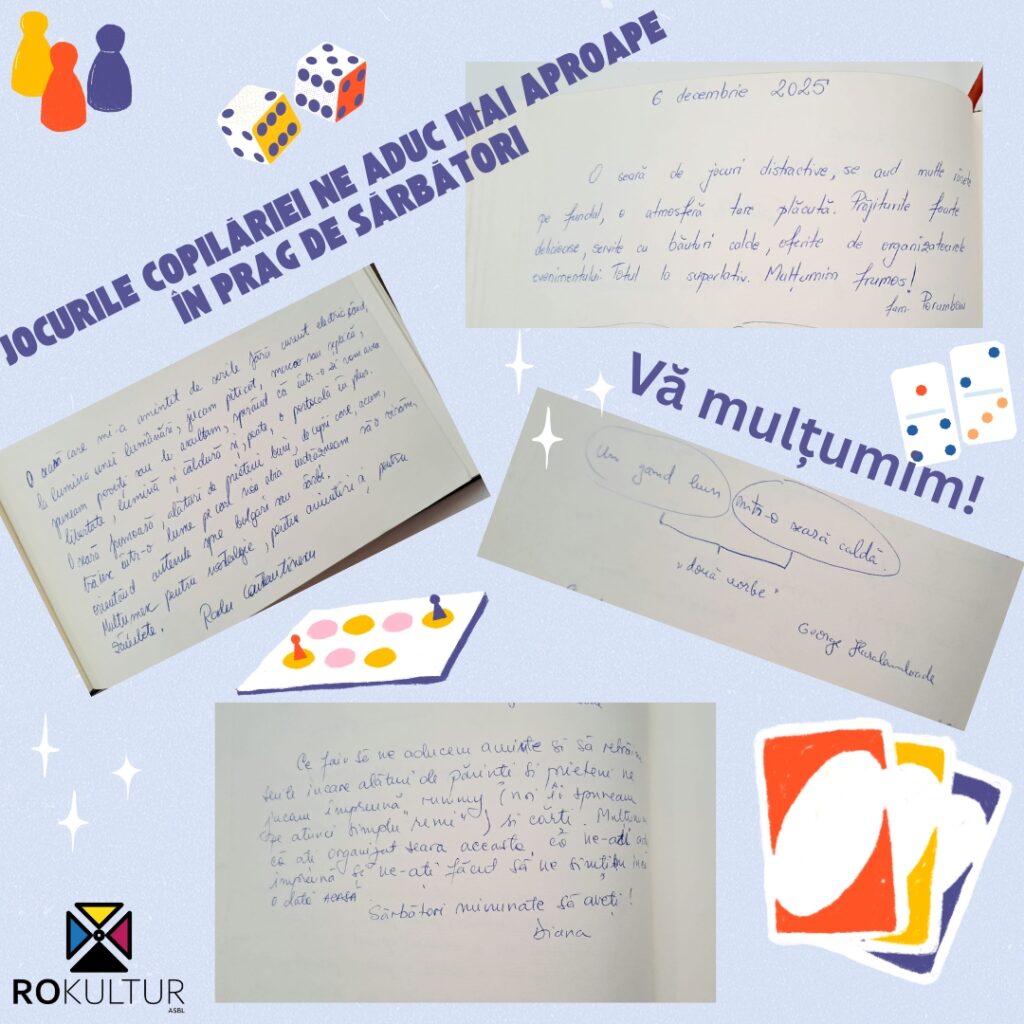 JOCURILE COPILĂRIEI NE ADUC MAI APROAPE
ÎN PRAG DE SĂRBĂTORI
6 decembrie 2025
O seară de jocuri distractive, se aud multe râsete
pe fundal, o atmosferă tare plăcută. Prăjiturile foarte
delicioase, servite cu băuturi calde, oferite de organizatoarele
evenimentului. Totul la superlativ. Mulțumim frumos!
fam. Porumbeau
O seară care mi-a amintit de serile fără curent electric când,
la lumina unei lumânări, jucam piticot, macao sau septică,
spuneam povești sau le ascultam, sperând că într-o zi vom avea
libertate, lumină și căldură și, poate, o portocală în plus.
O seară frumoasă, alături de prieteni buni, de copii care, acum,
trăiesc într-o lume pe care noi abia îndrăzneam să o visăm,
orientând antenele spre bulgari sau sârbi.
Mulțumesc pentru nostalgie, pentru amintiri și pentru
zâmbete. Radu Constantinescu
Vă mulțumim!
Un gând bun într-o seară caldă.
"două vorbe"
George Haralamboade
Ce fain să ne aducem aminte și să retrăim
serile în care alături de părinți și prieteni ne
jucam împreună, rummy (noi îi spuneam
pe atunci simplu "remi") și cărți. Mulțumim
că ați organizat seara aceasta, că ne-ați
împreună și ne-ați făcut să ne simțim încă
o dată ACASĂ!
Sărbători minunate să aveți!
Diana
ROKULTUR
ASBL